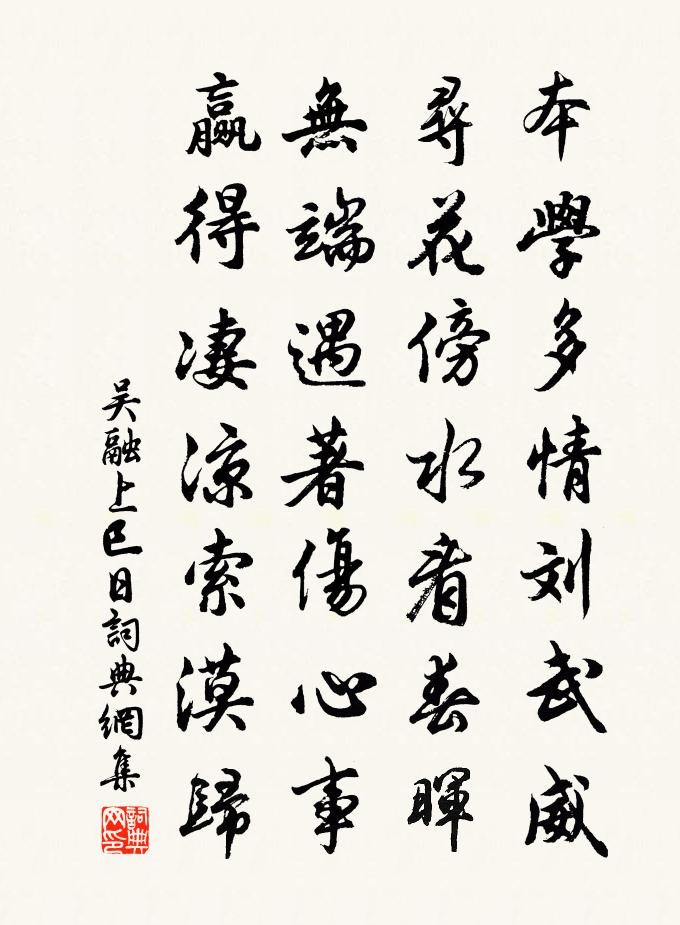 本學多情刘武威
尋花傍水看春暉
無端遇著傷心事
贏得凄凉索漠歸
吴融上巳日詞典網集
詞典网印